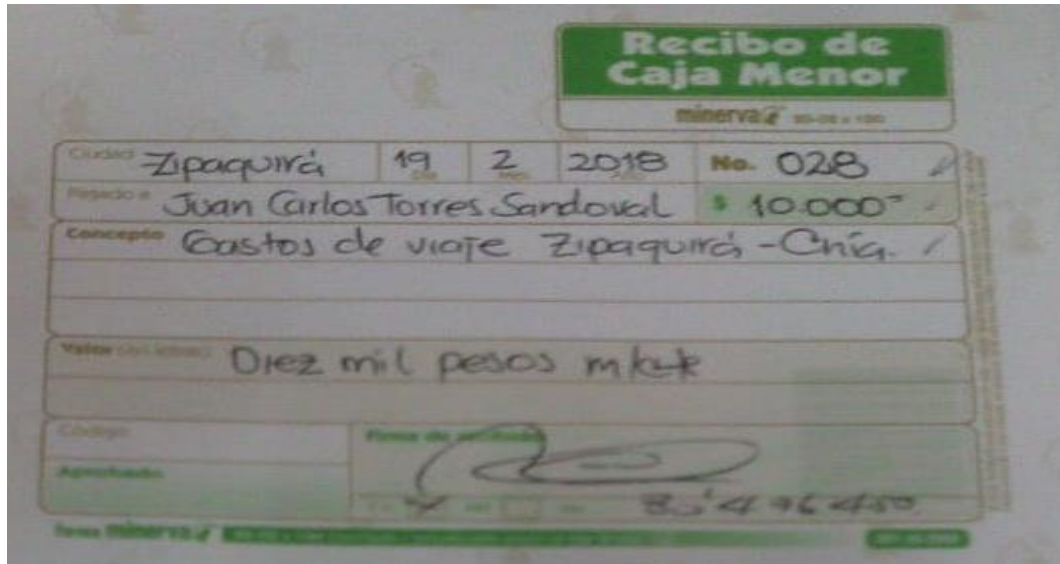 Recibo de
Caja Menor
minerva
Ciudad Zipaquirá 19 2 2018 No. 028
Pagado a Juan Carlos Torres Sandoval $ 10.000=
Concepto Gastos de viaje Zipaquirá - Chía.
Valor (en letras) Diez mil pesos
Código
Firma de recibido
Aprobado
forma minerva